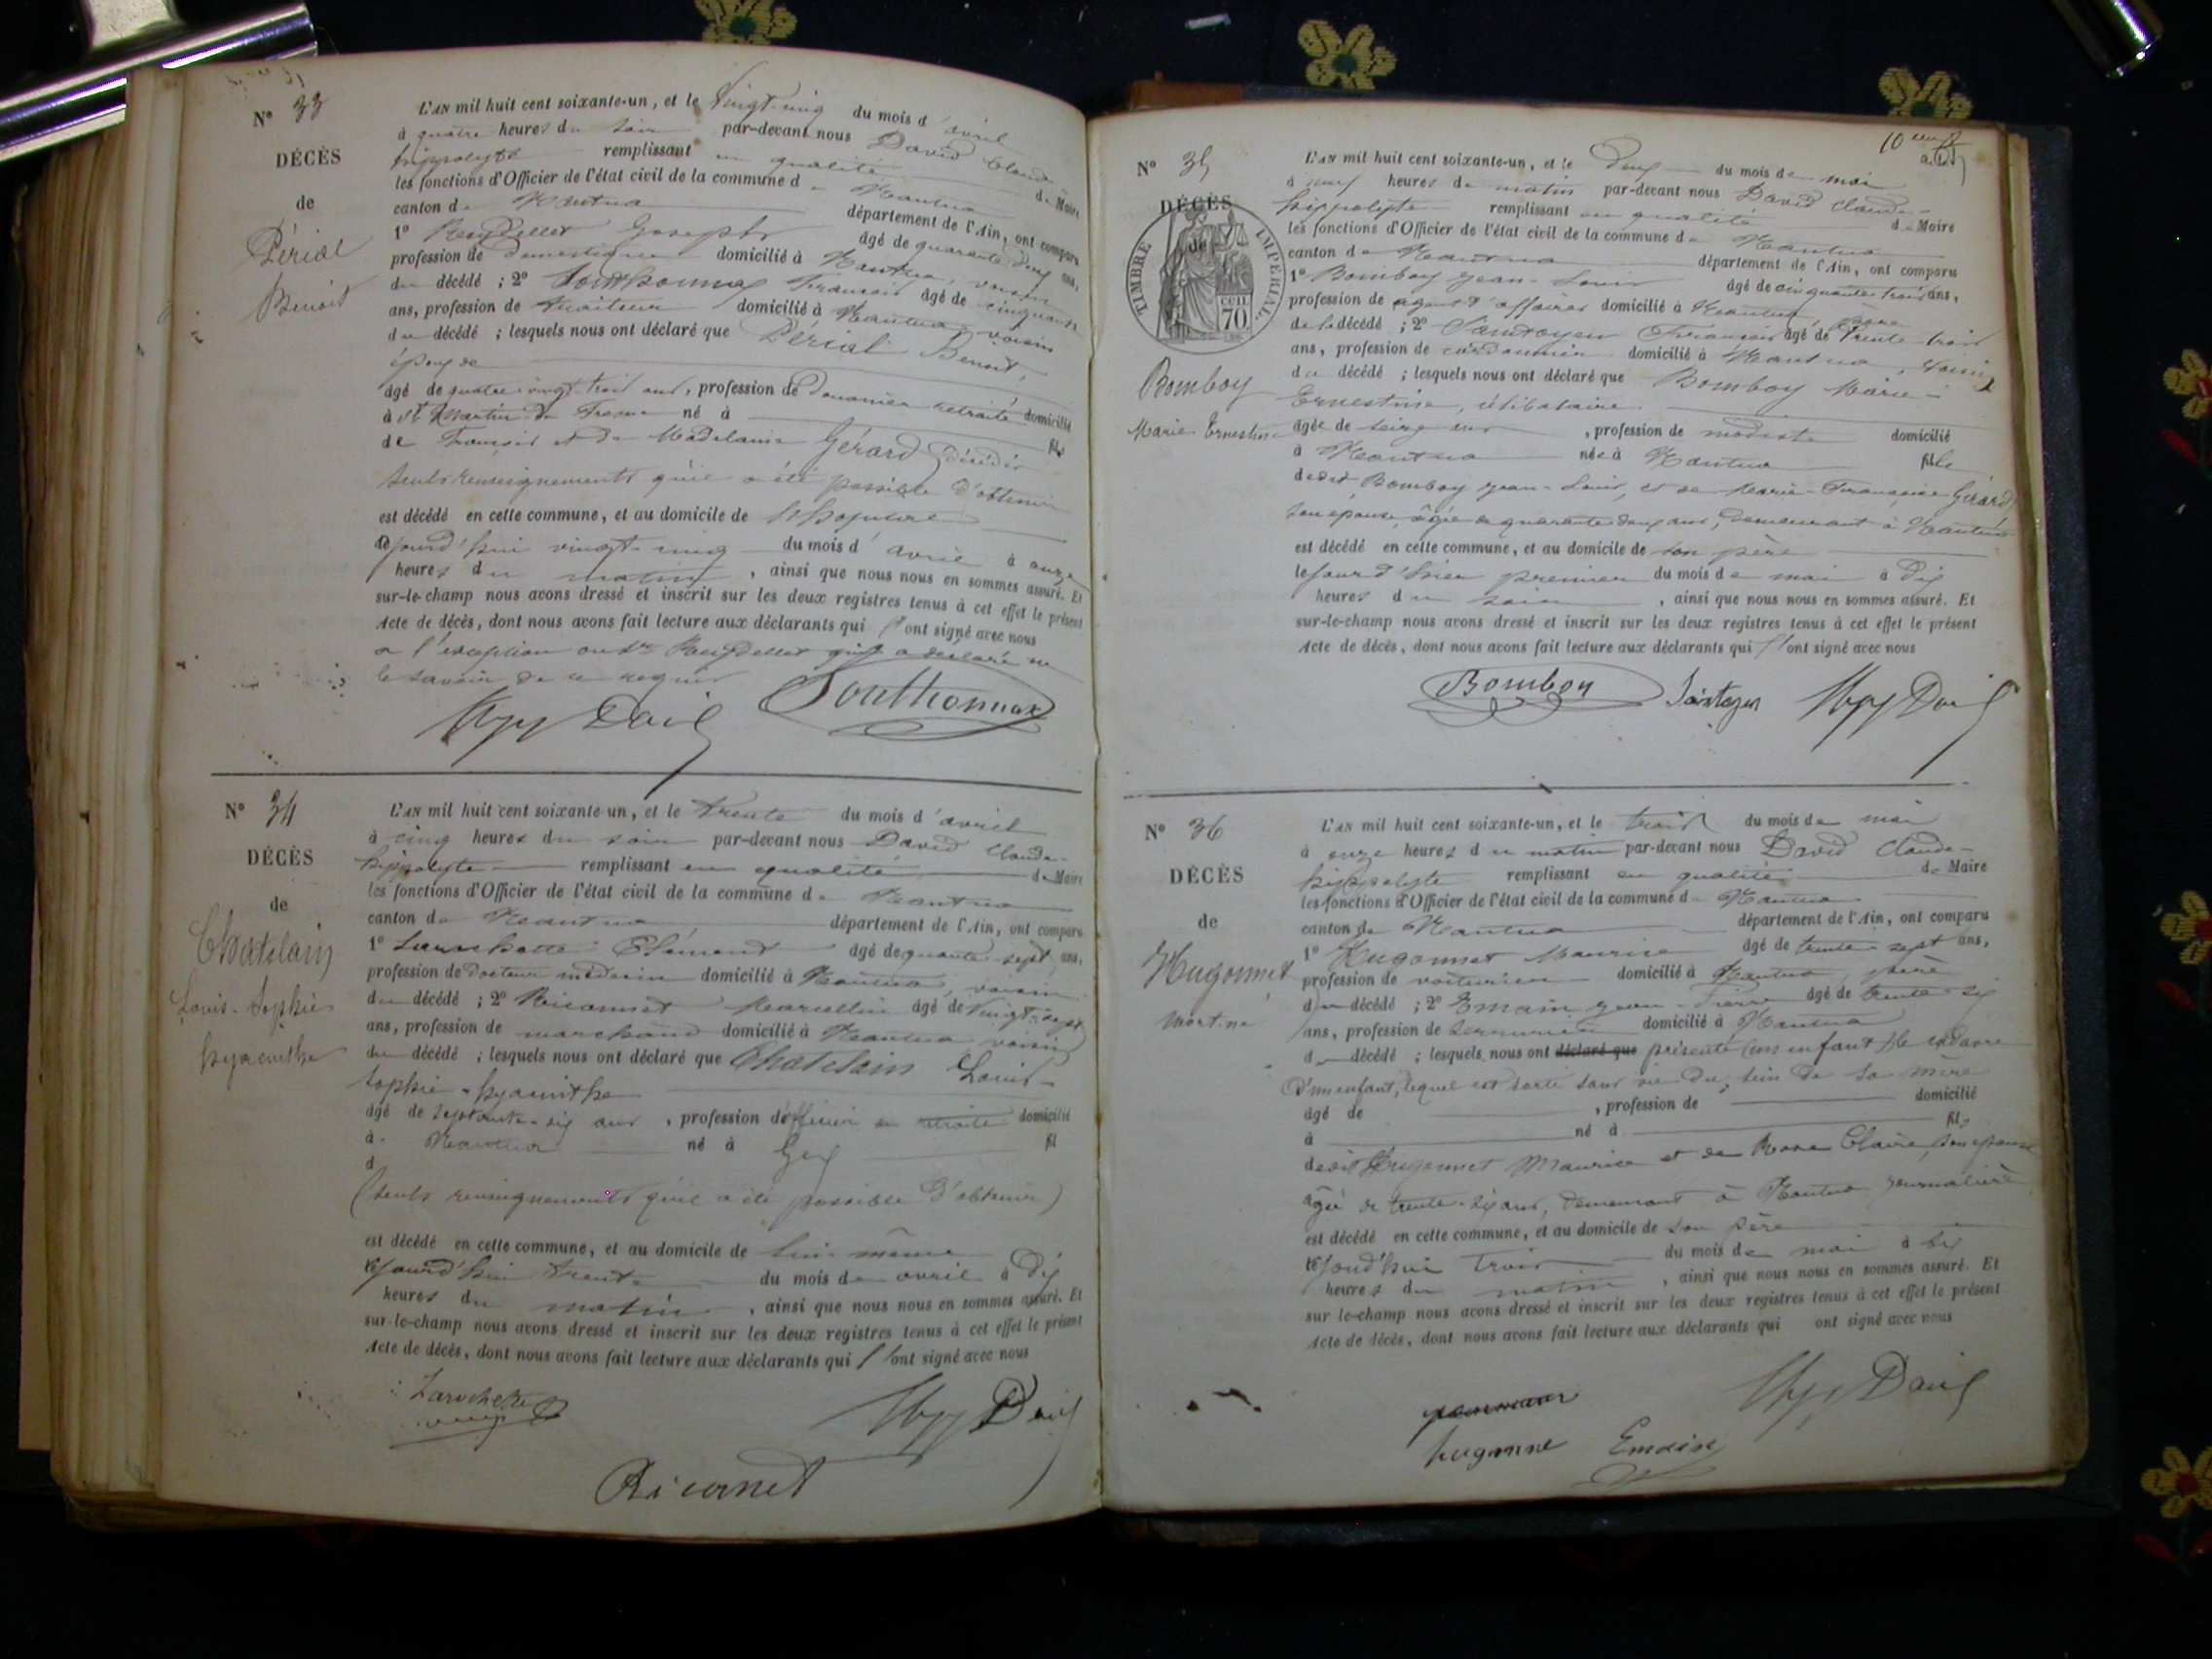 N° 33
DÉCÈS
de
Périal
Benoit
L'AN mil huit cent soixante-un, et le Vingt-cinq du mois d'avril
à quatre heures du soir par-devant nous David Claude
hippolyte remplissant en qualité de Maire
les fonctions d'Officier de l'état civil de la commune de Nantua
canton de Nantua département de l'Ain, ont comparu
1° Joseph âgé de quarante deux ans,
profession de domestique domicilié à Nantua, voisin
du décédé ; 2° Touthonnax François âgé de cinquante
ans, profession de traiteur domicilié à Nantua, voisin
du décédé ; lesquels nous ont déclaré que Périal Benoit,
époux de
âgé de quatre-vingt-trois ans, profession de Douanier retraité domicilié
à St Martin du Fresne né à fils
de François et de Madelaine Gérard, décédés
seuls renseignements qu'il a été possible d'obtenir
est décédé en cette commune, et au domicile de l'hopital
aujourd'hui vingt-cinq du mois d'avril à onze
heures du matin, ainsi que nous nous en sommes assuré. Et
sur-le-champ nous avons dressé et inscrit sur les deux registres tenus à cet effet le présent
Acte de décès, dont nous avons fait lecture aux déclarants qui l'ont signé avec nous
à l'exception du Sr qui a déclaré ne
le savoir de ce requis
Hipp David Touthonnax
N° 34
DÉCÈS
de
Chatelain
Louis-Sophie
hyacinthe
L'AN mil huit cent soixante-un, et le trente du mois d'avril
à cinq heures du soir par-devant nous David Claude-
hippolyte remplissant en qualité de Maire
les fonctions d'Officier de l'état civil de la commune de Nantua
canton de Nantua département de l'Ain, ont comparu
1° Larochette Clément âgé de quarante-sept ans,
profession de docteur médecin domicilié à Nantua, voisin
du décédé ; 2° Marcellin âgé de vingt-sept
ans, profession de marchand domicilié à Nantua voisin
du décédé ; lesquels nous ont déclaré que Chatelain Louis-
Sophie-hyacinthe
âgé de septante-six ans, profession d'officier en retraite domicilié
à Nantua né à Gex fil
d
(seuls renseignements qu'il a été possible d'obtenir)
est décédé en cette commune, et au domicile de lui même
aujourd'hui trente du mois de avril à dix
heures du matin, ainsi que nous nous en sommes assuré. Et
sur-le-champ nous avons dressé et inscrit sur les deux registres tenus à cet effet le présent
Acte de décès, dont nous avons fait lecture aux déclarants qui l'ont signé avec nous
Larochette Hipp David
Ricornet
N° 35
DÉCÈS
de
TIMBRE IMPÉRIAL
70
Bomboy
Marie Ernestine
L'AN mil huit cent soixante-un, et le deux du mois de mai
à neuf heures du matin par-devant nous David Claude-
hippolyte remplissant en qualité de Maire
les fonctions d'Officier de l'état civil de la commune de Nantua
canton de Nantua département de l'Ain, ont comparu
1° Bomboy Jean-Louis âgé de cinquante-trois ans,
profession de agent d'affaires domicilié à Nantua, père
de la décédé ; 2° Santoyen François âgé de trente-trois
ans, profession de cordonnier domicilié à Nantua, voisin
du décédé ; lesquels nous ont déclaré que Bomboy Marie-
Ernestine, célibataire
âgée de seize ans, profession de modiste domicilié
à Nantua née à Nantua fille
dedit Bomboy Jean-Louis, et de Marie-Françoise Gérard
son épouse, âgée de quarante deux ans, demeurant à Nantua
est décédé en cette commune, et au domicile de son père
le jour d'hier premier du mois de mai à dix
heures du soir, ainsi que nous nous en sommes assuré. Et
sur-le-champ nous avons dressé et inscrit sur les deux registres tenus à cet effet le présent
Acte de décès, dont nous avons fait lecture aux déclarants qui l'ont signé avec nous
Bomboy Hipp David
N° 36
DÉCÈS
de
Hugonnet
mort-né
L'AN mil huit cent soixante-un, et le trois du mois de mai
à onze heures du matin par-devant nous David Claude-
hippolyte remplissant en qualité de Maire
les fonctions d'Officier de l'état civil de la commune de Nantua
canton de Nantua département de l'Ain, ont comparu
1° Hugonnet Maurice âgé de trente-sept ans,
profession de voiturier domicilié à Nantua, père
du décédé ; 2° Emain Jean-Pierre âgé de trente-six
ans, profession de serrurier domicilié à Nantua
d décédé ; lesquels nous ont déclaré que présenté un enfant le cadavre
d'un enfant, lequel est sorti sans vie du sein de sa mère
âgé de , profession de domicilié
à né à fils
dedit Hugonnet Maurice et de Claire, son épouse
âgée de trente-six ans, demeurant à Nantua journalière
est décédé en cette commune, et au domicile de son père
aujourd'hui trois du mois de mai à six
heures du matin, ainsi que nous nous en sommes assuré. Et
sur-le-champ nous avons dressé et inscrit sur les deux registres tenus à cet effet le présent
Acte de décès, dont nous avons fait lecture aux déclarants qui ont signé avec nous
Hipp David
hugonne Emain